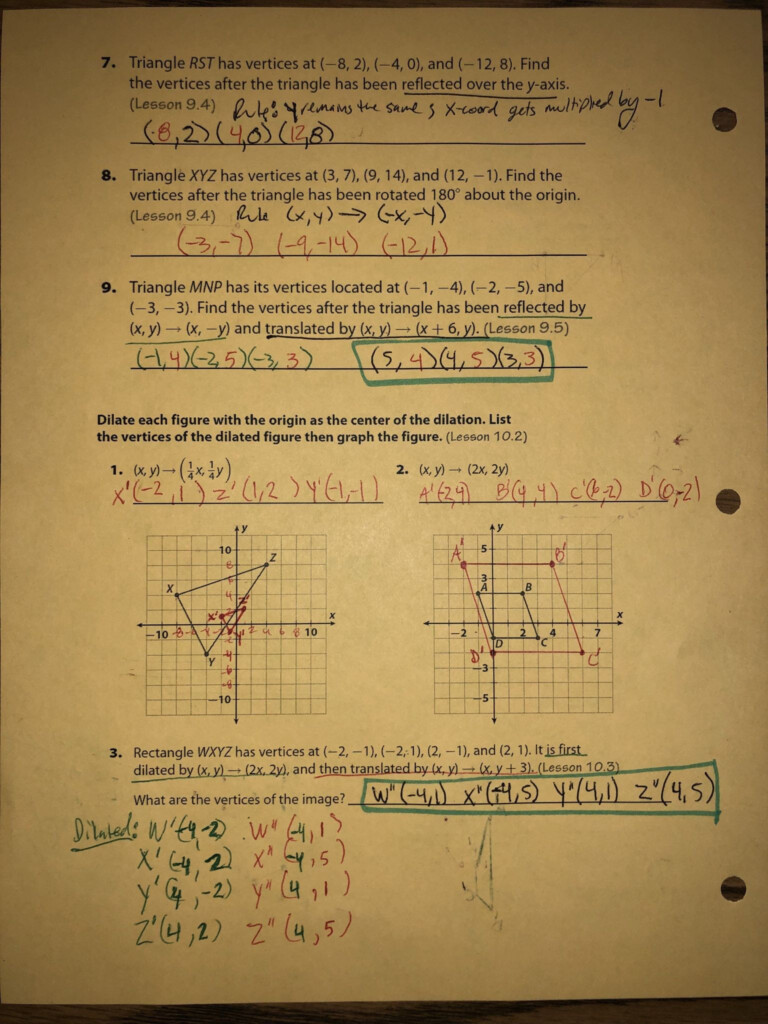 7. Triangle RST has vertices at (−8, 2), (−4, 0), and (−12, 8). Find
the vertices after the triangle has been reflected over the y-axis.
(Lesson 9.4) Rule: y remains the same & x-coord gets multiplied by -1
(-8,2) (4,0) (12,8)
8. Triangle XYZ has vertices at (3, 7), (9, 14), and (12, −1). Find the
vertices after the triangle has been rotated 180° about the origin.
(Lesson 9.4) Rule (x,y) → (-x,-y)
(-3,-7) (-9,-14) (-12,1)
9. Triangle MNP has its vertices located at (−1, −4), (−2, −5), and
(−3, −3). Find the vertices after the triangle has been reflected by
(x, y) → (x, −y) and translated by (x, y) → (x + 6, y). (Lesson 9.5)
(-1,4)(-2,5)(-3,3) (5,4)(4,5)(3,3)
Dilate each figure with the origin as the center of the dilation. List
the vertices of the dilated figure then graph the figure. (Lesson 10.2)
←
1. (x, y) → (1/4x, 1/4y) 2. (x, y) → (2x, 2y)
X'(-2,1) Z'(1,2) Y'(-1,-1) A'(-2,4) B'(4,4) C'(6,-2) D'(0,-2)
y y
10 8 Z A' 5 B'
6
X 4 3 A B
X' 2 Z'
x x
−10 -8 -6 -4 -2 Y' 2 4 6 8 10 −2 D 2 C 4 7
Y -4 D' −3 C'
-6
-8
−10 −5
3. Rectangle WXYZ has vertices at (−2, −1), (−2, 1), (2, −1), and (2, 1). It is first
dilated by (x, y) → (2x, 2y), and then translated by (x, y) → (x, y + 3). (Lesson 10.3)
What are the vertices of the image? W"(-4,1) X"(-4,5) Y"(4,1) Z"(4,5)
Dilated: W'(-4,-2) W"(-4,1)
X'(-4,2) X"(-4,5)
Y'(4,-2) Y"(4,1)
Z'(4,2) Z"(4,5)